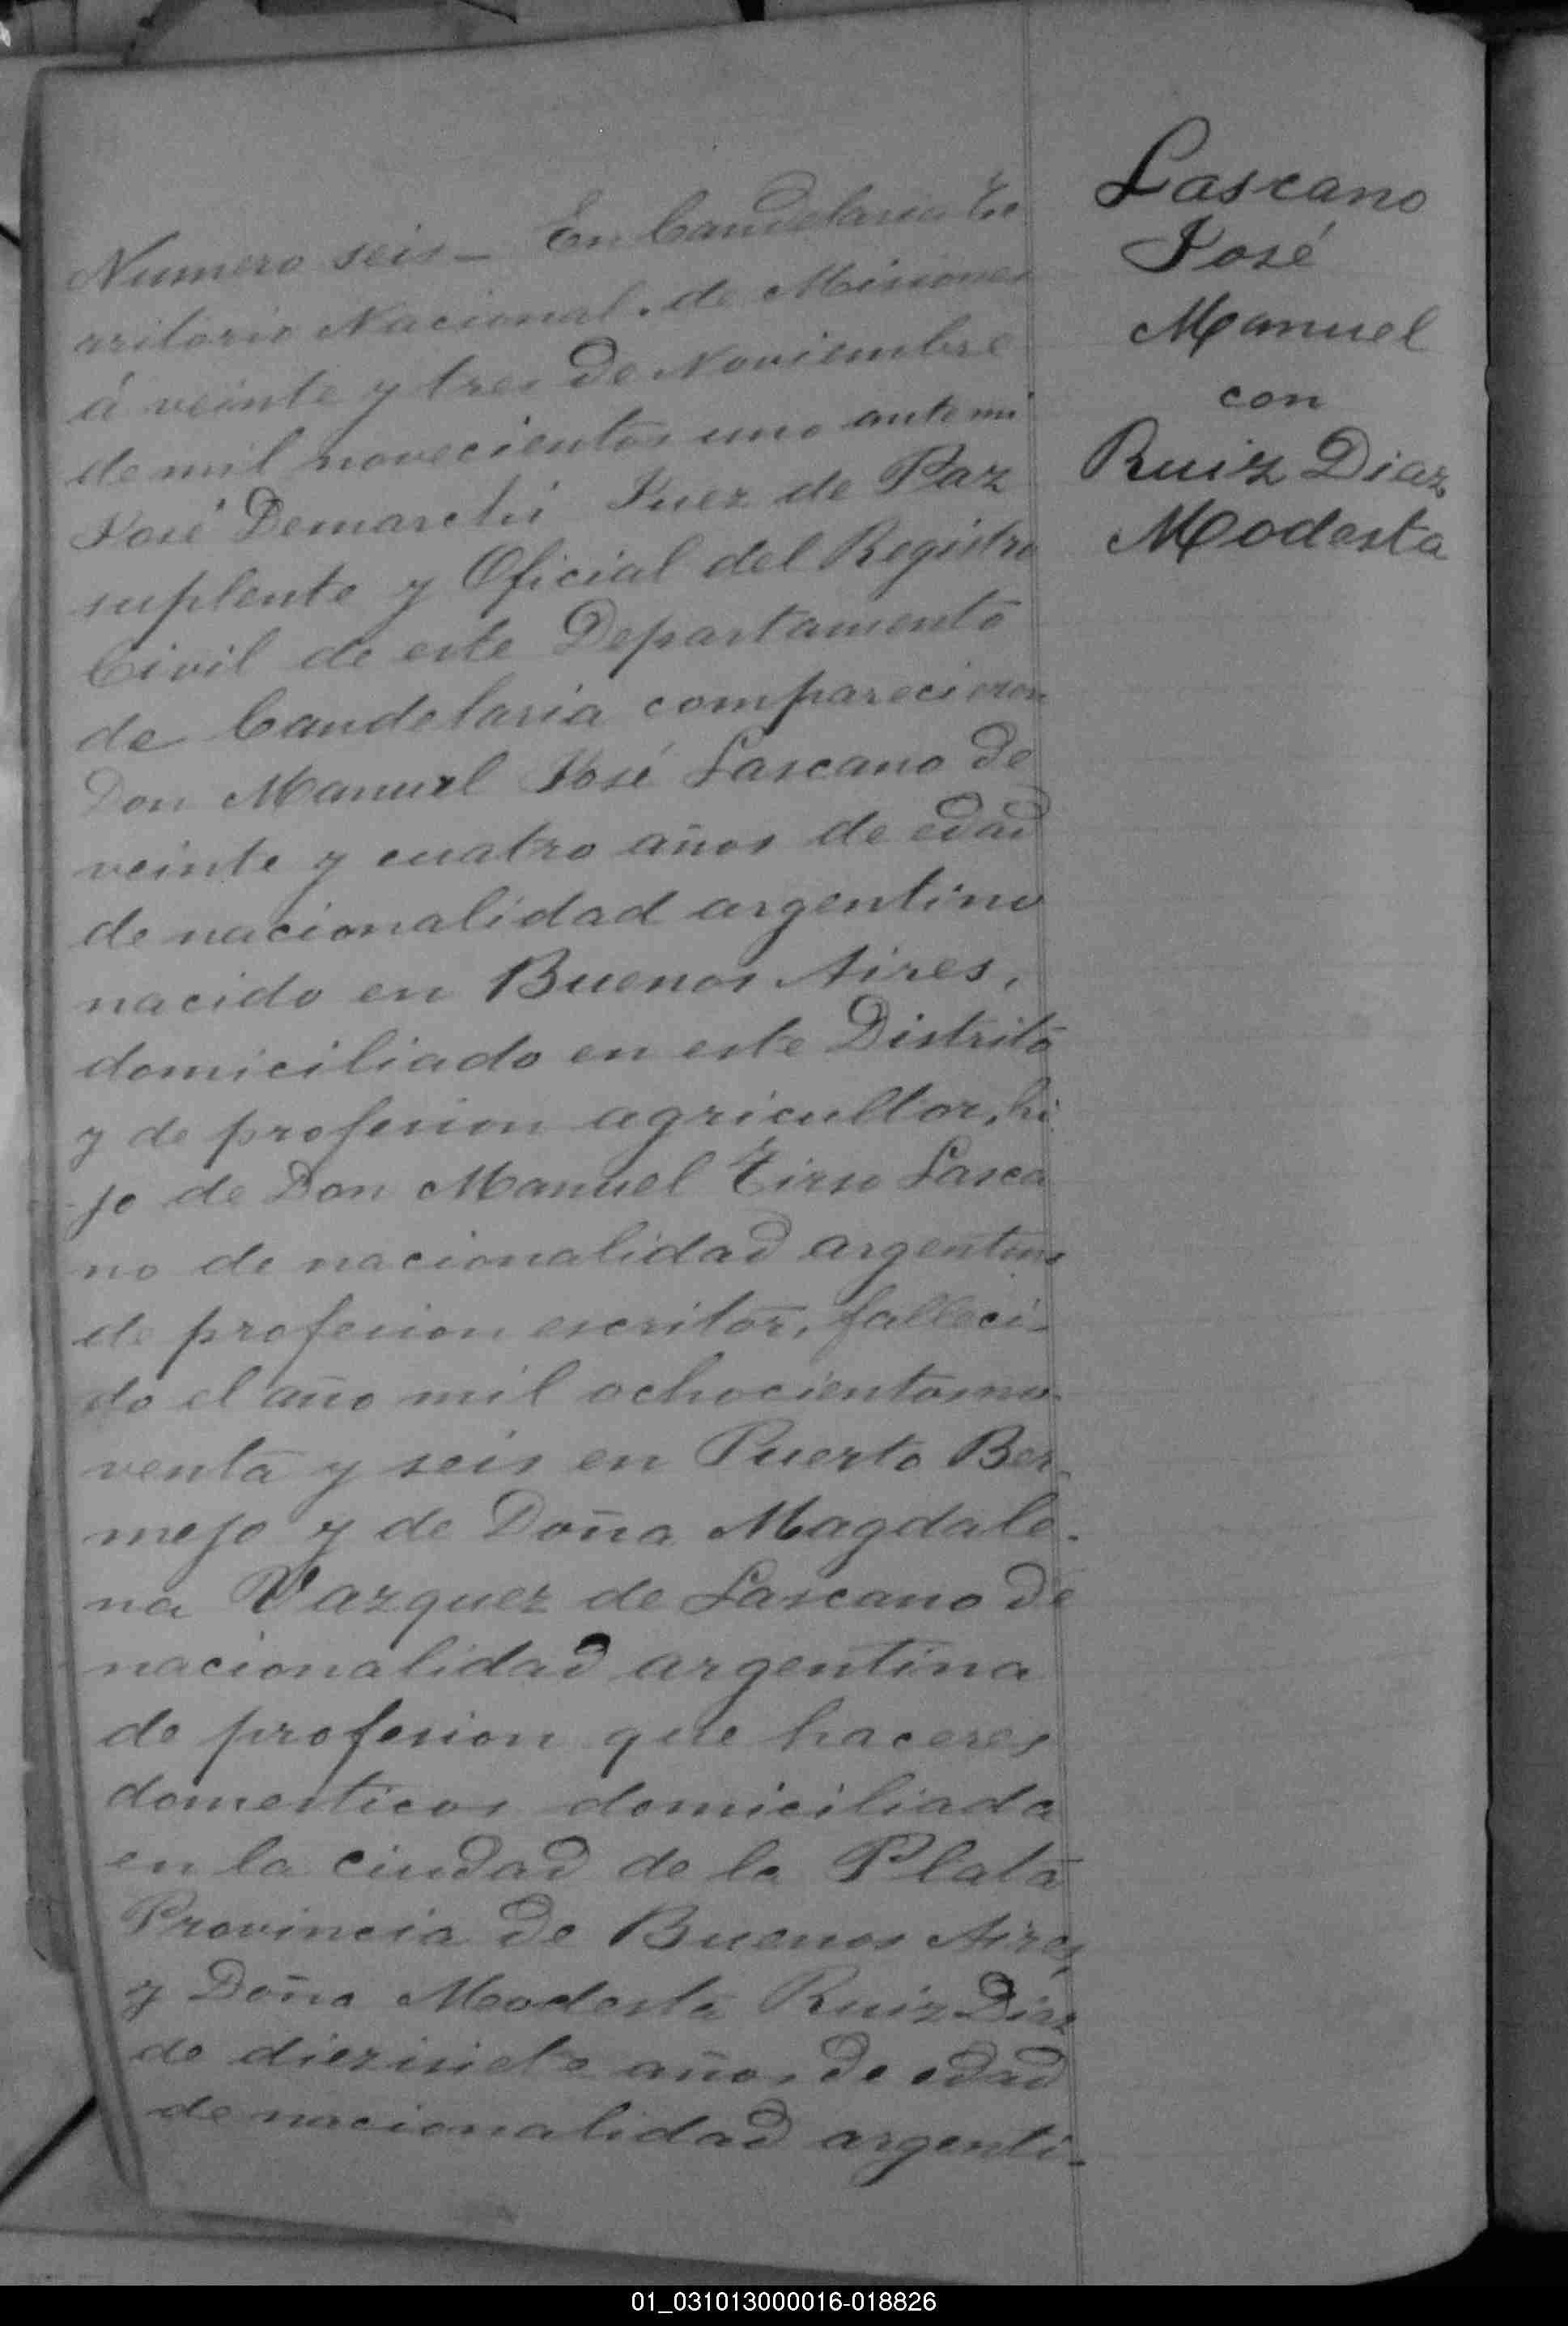 Numero seis — En Candelaria Te
rritorio Nacional de Misiones
á veinte y tres de Noviembre
de mil novecientos uno ante mi
José Demarchi Juez de Paz
suplente y Oficial del Registro
Civil de este Departamento
de Candelaria comparecieron
Don Manuel José Lascano de
veinte y cuatro años de edad
de nacionalidad argentino
nacido en Buenos Aires,
domiciliado en este Distrito
y de profesion agricultor, hi
jo de Don Manuel Tirso Lasca
no de nacionalidad argentino
de profesion escritor, falleci-
do el año mil ochocientos no-
venta y seis en Puerto Ber-
mejo y de Doña Magdale-
na Vazquez de Lascano de
nacionalidad argentina
de profesion que haceres
domesticos domiciliada
en la ciudad de la Plata
Provincia de Buenos Aires,
y Doña Modesta Ruiz Diaz
de diezisiete años de edad
de nacionalidad argenti-
Lascano
José
Manuel
con
Ruiz Diaz
Modesta
01_031013000016-018826